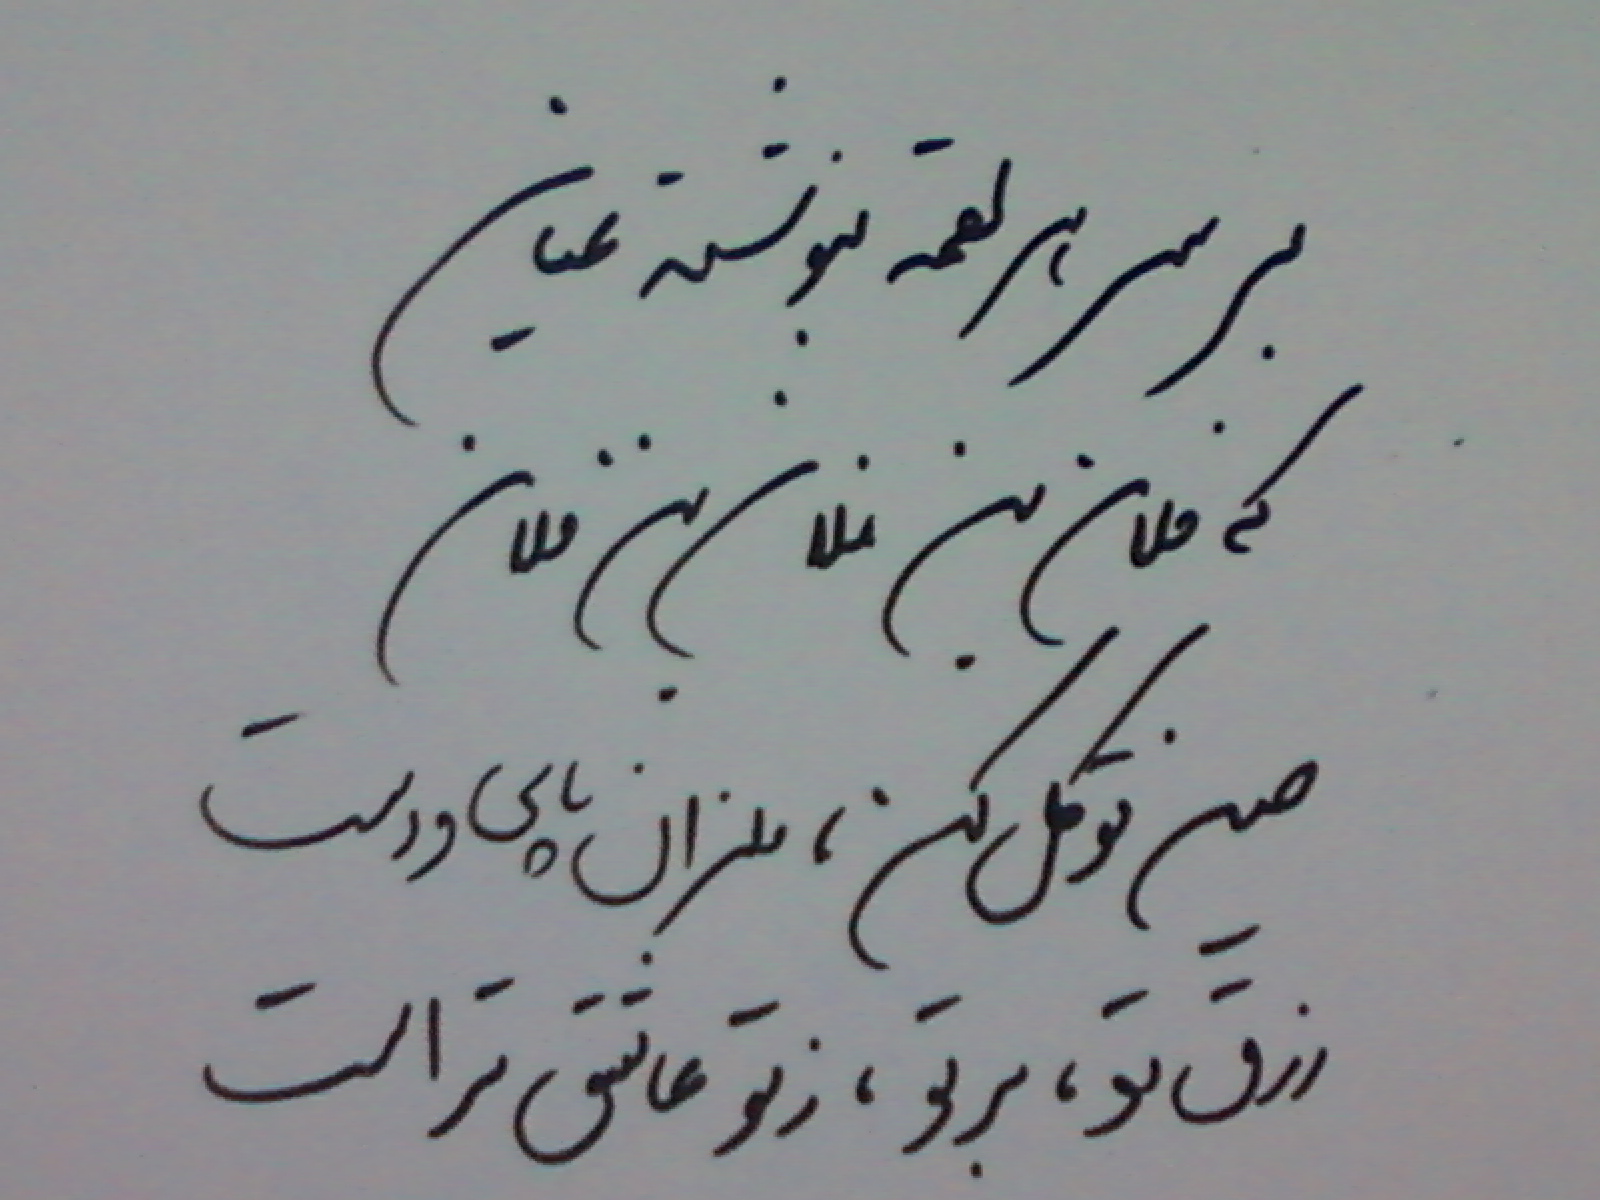 بر سر هر لقمه بنوشته عیان
که فلان بن فلان بن فلان
هین توکل کن، ملرزان پای و دست
رزق تو، بر تو، ز تو عاشق تر است